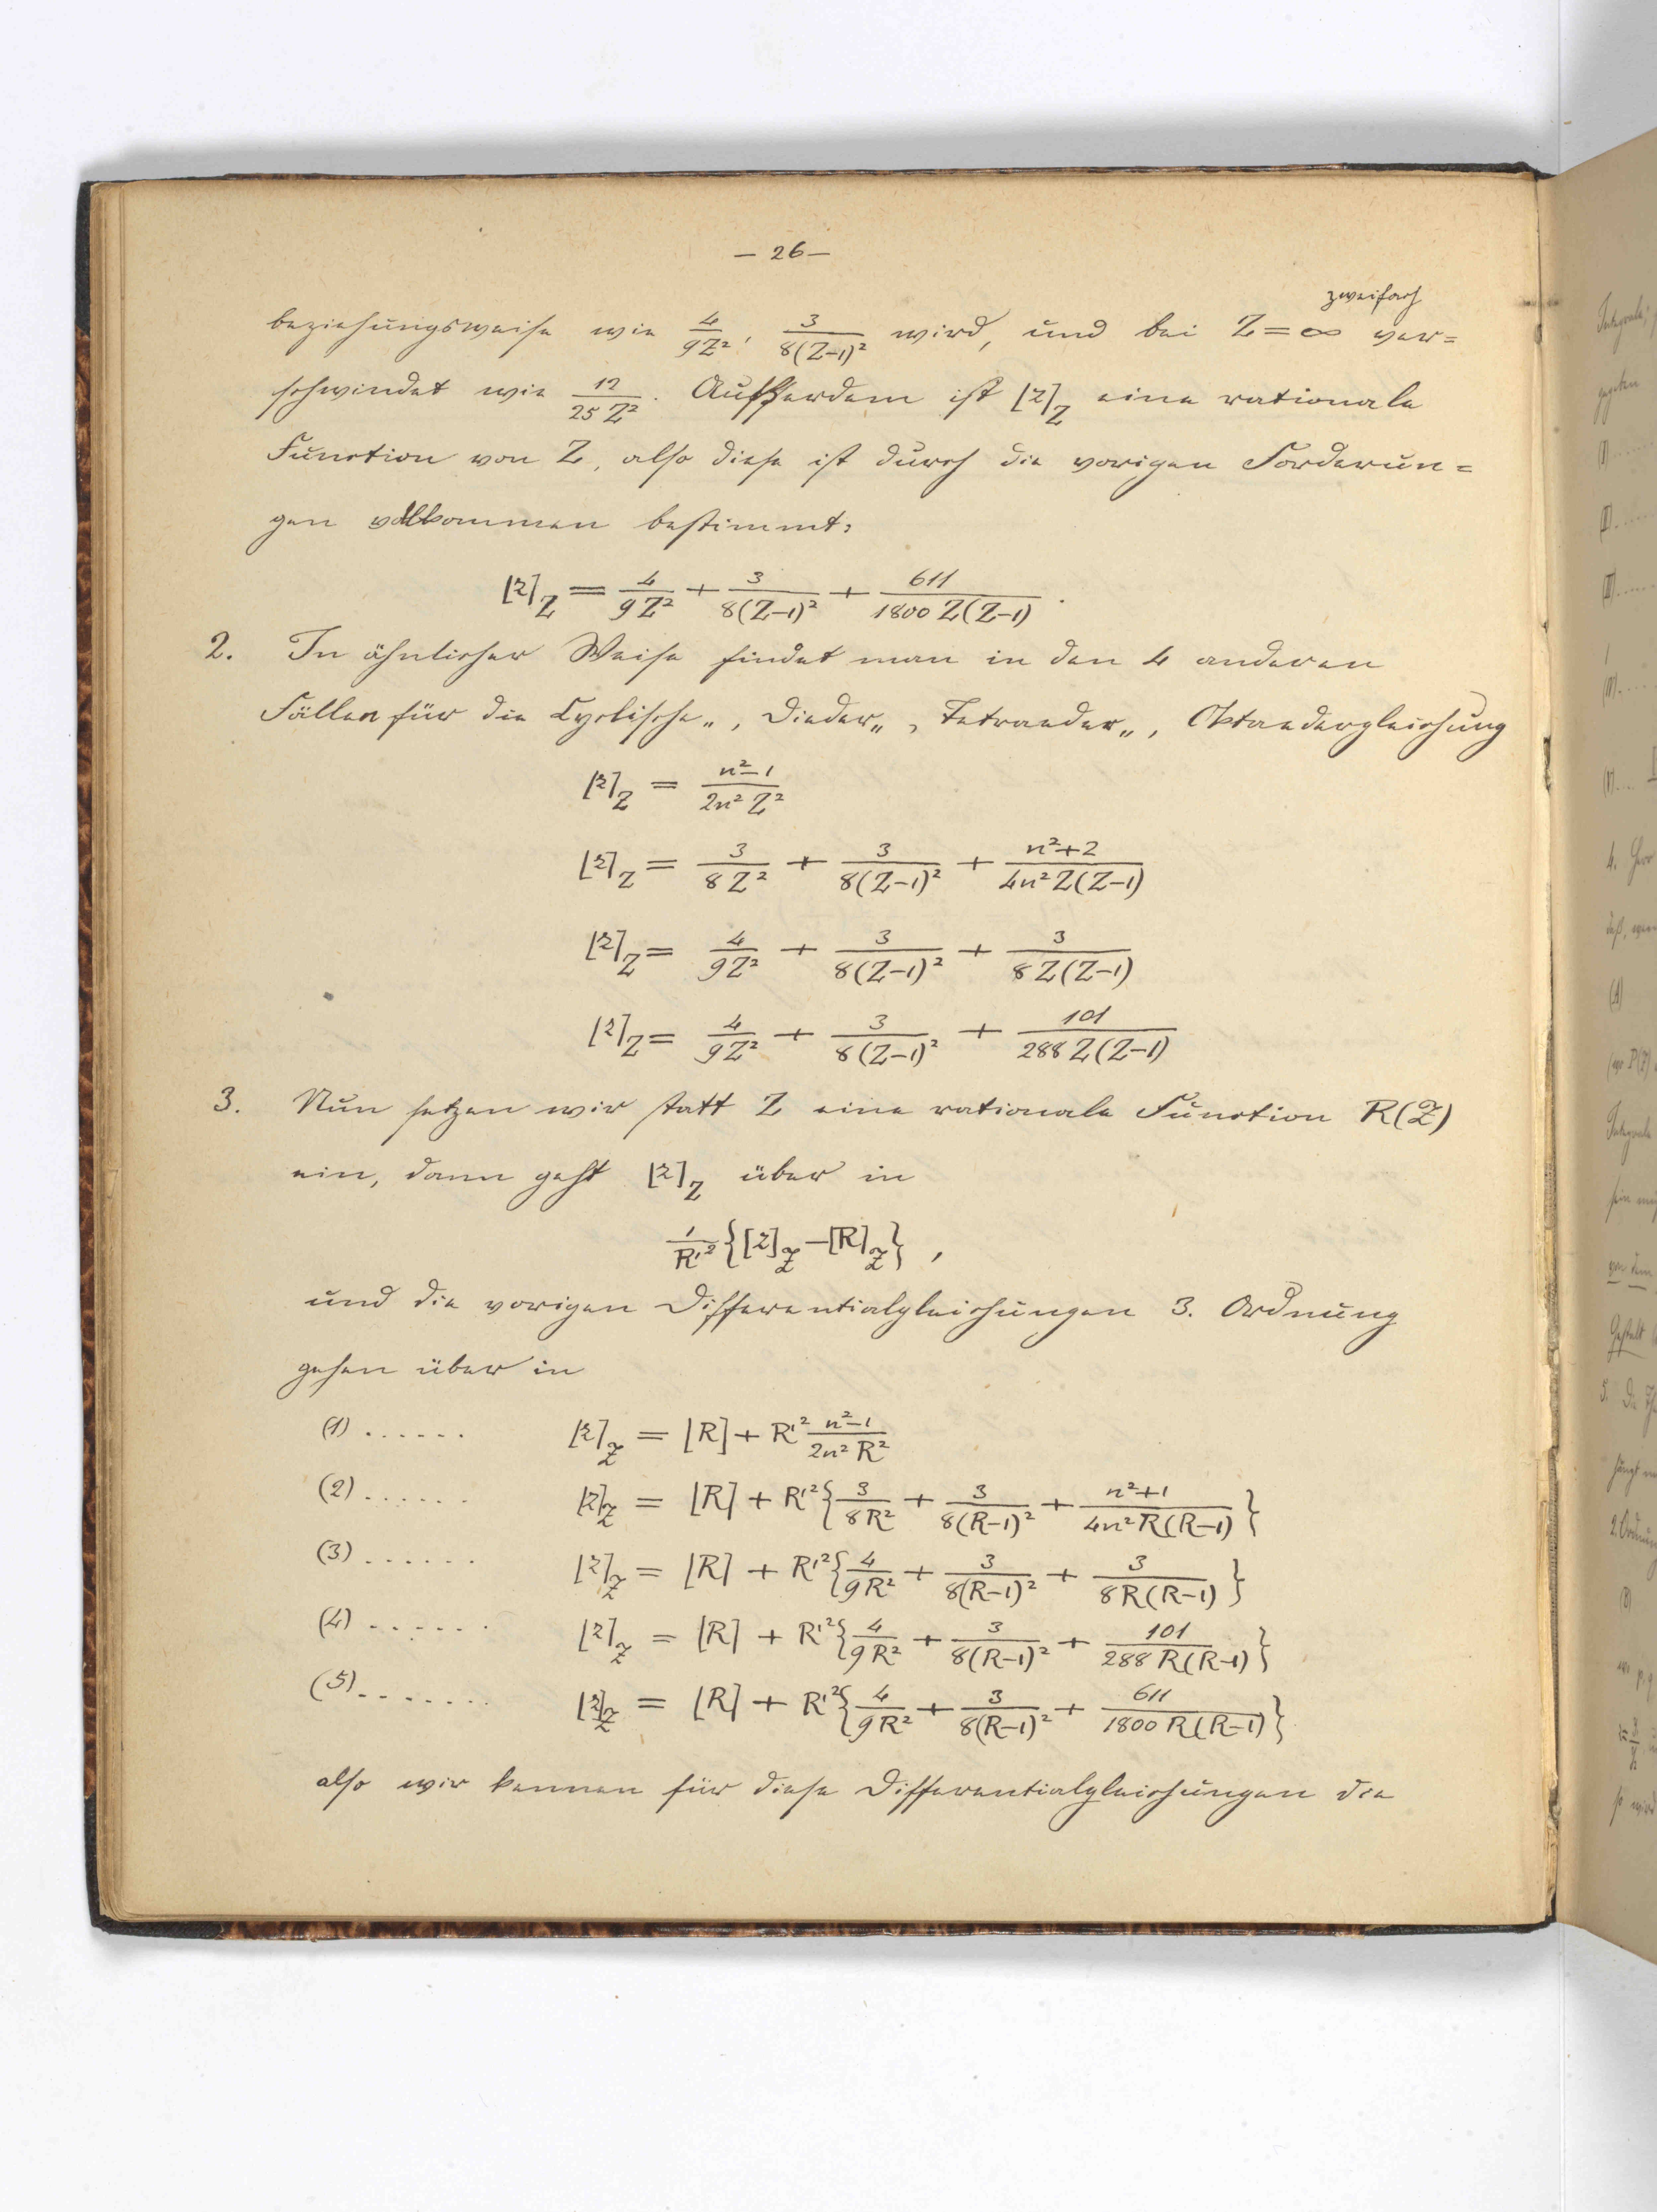 — 26 —
zweifach
beziehungsweise wie 4/9Z², 3/8(Z−1)² wird, und bei Z = ∞ ver=
schwindet wie 12/25 Z². Außerdem ist [z]_Z eine rationale
Function von Z, also diese ist durch die vorigen Forderun=
gen vollkommen bestimmt:
[z]_Z = 4/9Z² + 3/8(Z−1)² + 611/1800 Z(Z−1).
2. In ähnlicher Weise findet man in den 4 anderen
Fällen für die Cyclische„, Dieder„, Tetraeder„, Oktaedergleichung
[z]_Z = n²−1/2n² Z²
[z]_Z = 3/8 Z² + 3/8(Z−1)² + n²+2/4n² Z(Z−1)
[z]_Z = 4/9Z² + 3/8(Z−1)² + 3/8 Z(Z−1)
[z]_Z = 4/9Z² + 3/8(Z−1)² + 101/288 Z(Z−1)
3. Nun setzen wir statt Z eine rationale Function R(Z)
ein, dann geht [z]_Z über in
1/R'² {[z]_Z − [R]_Z},
und die vorigen Differentialgleichungen 3. Ordnung
gehen über in
(1) ...... [z]_Z = [R] + R'² n²−1/2n² R²
(2) ...... [z]_Z = [R] + R'² {3/8R² + 3/8(R−1)² + n²+1/4n² R(R−1)}
(3) ...... [z]_Z = [R] + R'² {4/9R² + 3/8(R−1)² + 3/8R(R−1)}
(4) ...... [z]_Z = [R] + R'² {4/9R² + 3/8(R−1)² + 101/288 R(R−1)}
(5) ........ [z]_Z = [R] + R'² {4/9R² + 3/8(R−1)² + 611/1800 R(R−1)}
also wir kennen für diese Differentialgleichungen die